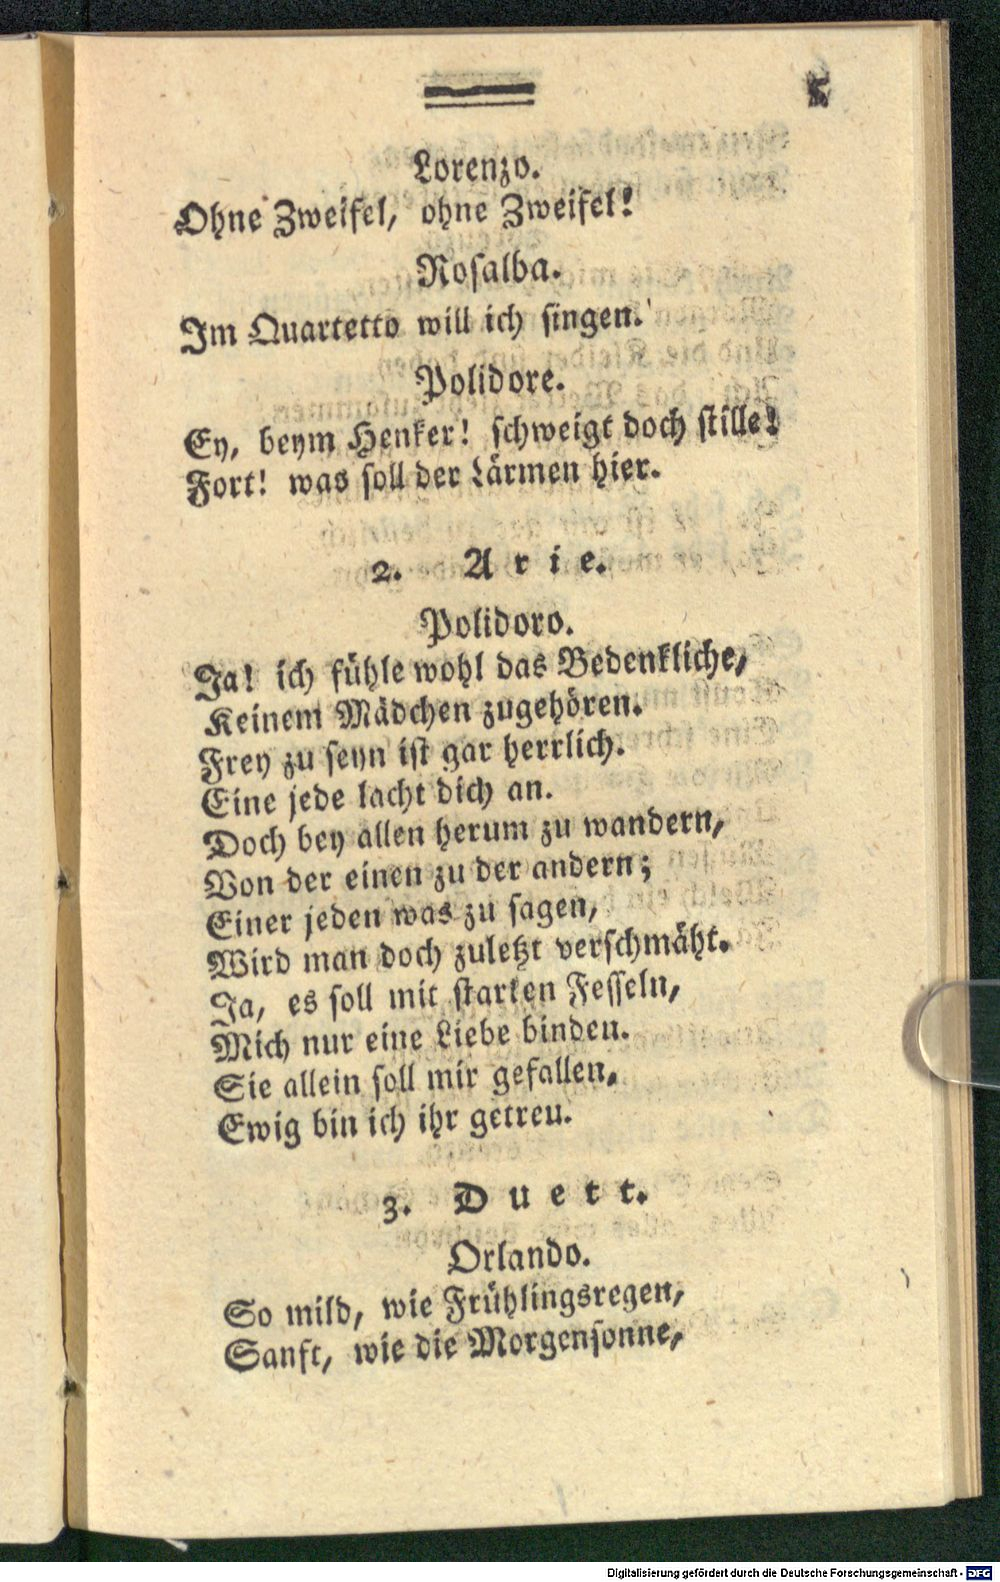 5
Lorenzo.
Ohne Zweifel, ohne Zweifel!
Rosalba.
Im Quartetto will ich singen.
Polidore.
Ey, beym Henker! schweigt doch stille!
Fort! was soll der Lärmen hier.
2. Arie.
Polidoro.
Ja! ich fühle wohl das Bedenkliche,
Keinem Mädchen zugehören.
Frey zu seyn ist gar herrlich.
Eine jede lacht dich an.
Doch bey allen herum zu wandern,
Von der einen zu der andern;
Einer jeden was zu sagen,
Wird man doch zuletzt verschmäht.
Ja, es soll mit starken Fesseln,
Mich nur eine Liebe binden.
Sie allein soll mir gefallen,
Ewig bin ich ihr getreu.
3. Duett.
Orlando.
So mild, wie Frühlingsregen,
Sanft, wie die Morgensonne,
Digitalisierung gefördert durch die Deutsche Forschungsgemeinschaft - DFG